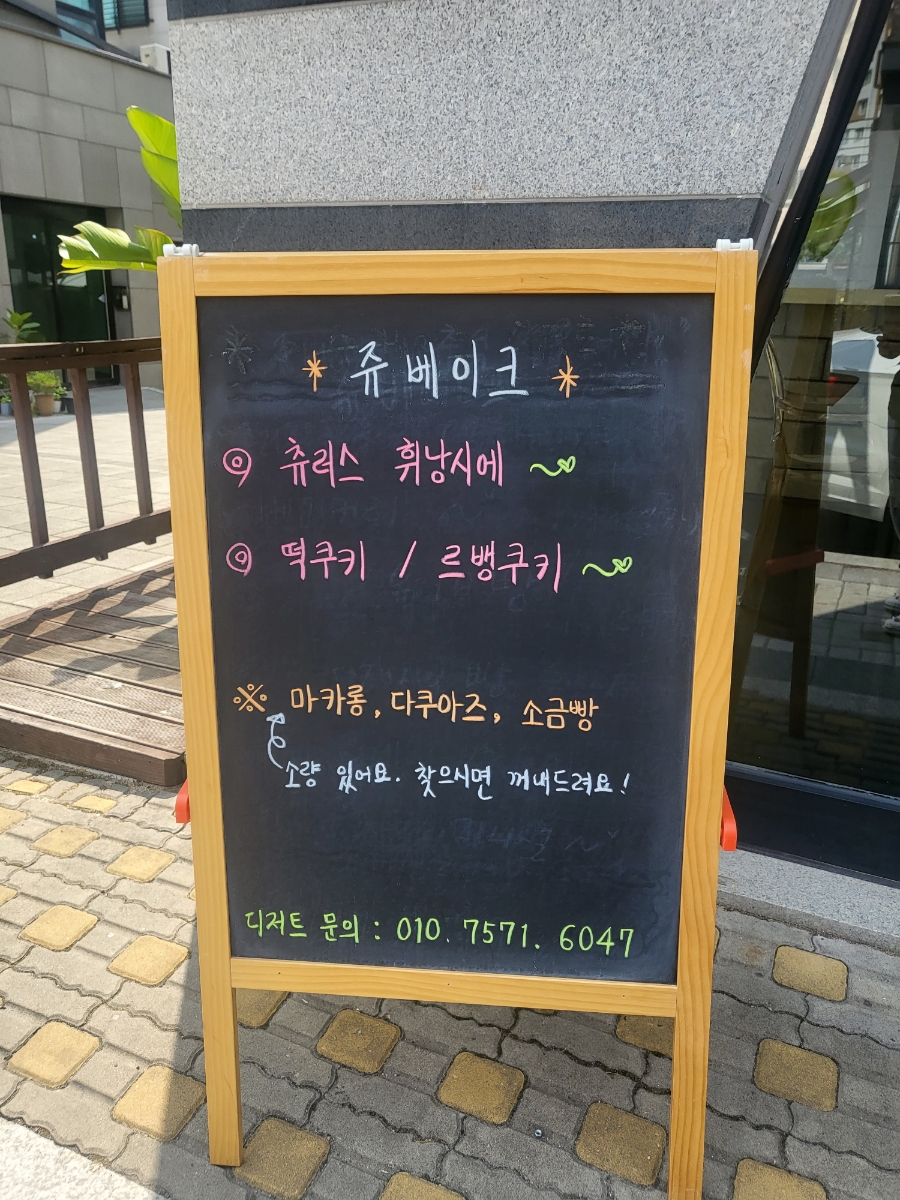 * 쥬베이크 *
츄러스 휘낭시에
떡쿠키 / 르뱅쿠키
※ 마카롱, 다쿠아즈, 소금빵
소량 있어요. 찾으시면 꺼내드려요!
디저트 문의 : 010. 7571. 6047